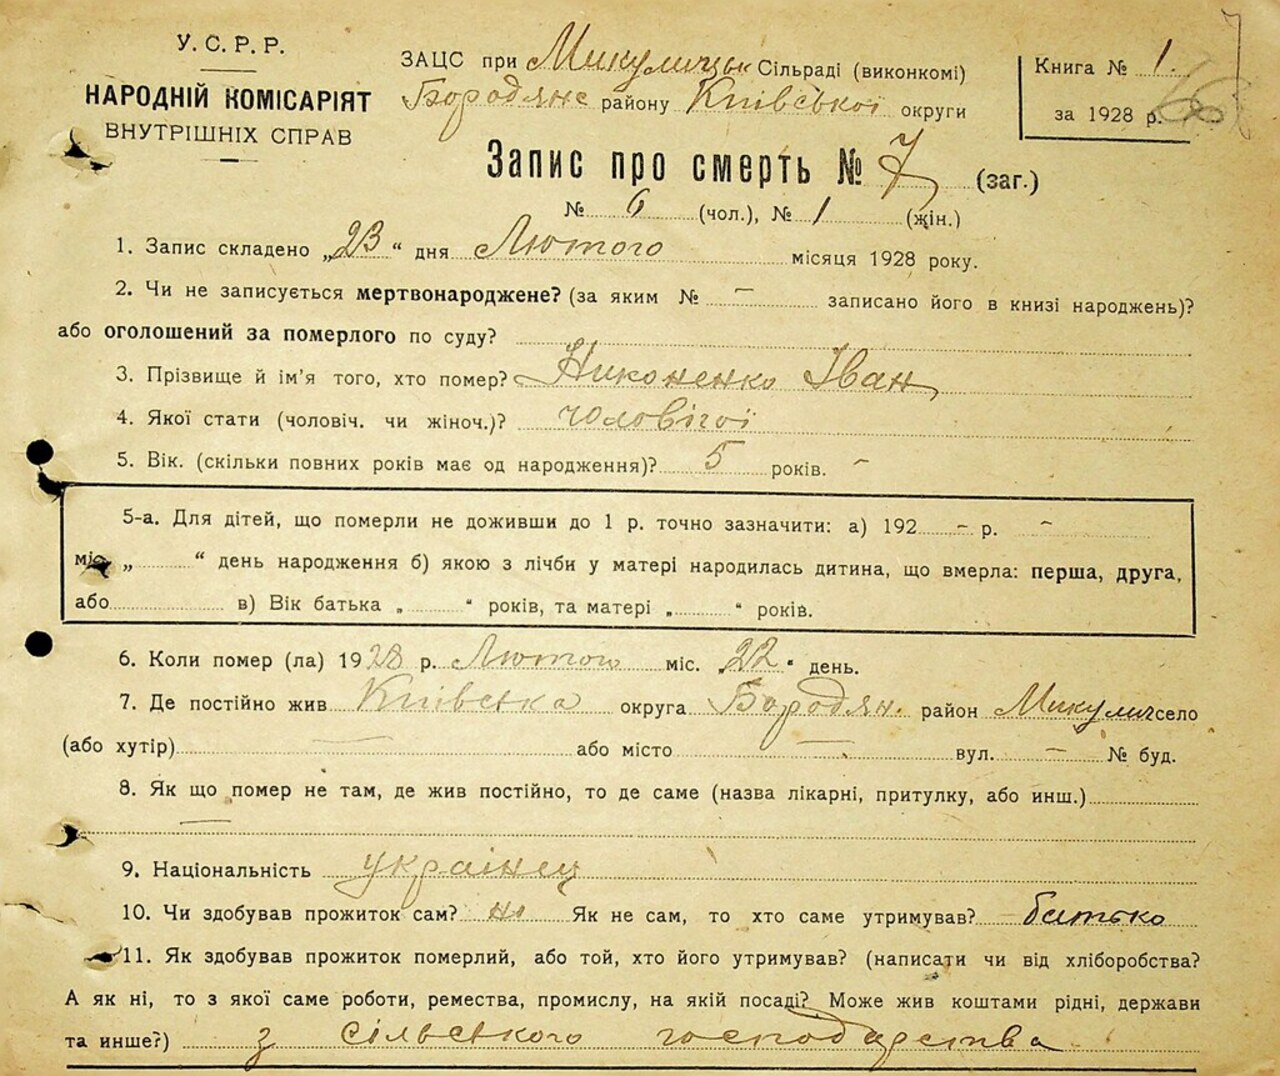 У. С. Р. Р.
НАРОДНІЙ КОМІСАРІЯТ
ВНУТРІШНІХ СПРАВ
ЗАЦС при Микулицьк Сільраді (виконкомі)
Бородянс району Київської округи
Книга № 1.
за 1928 р.
Запис про смерть № 7 (заг.)
№ 6 (чол.), № 1 (жін.)
1. Запис складено „23“ дня Лютого місяця 1928 року.
2. Чи не записується мертвонароджене? (за яким № — записано його в книзі народжень)?
або оголошений за померлого по суду?
3. Прізвище й ім'я того, хто помер? Никоненко Іван
4. Якої стати (чоловіч. чи жіноч.)? чоловічої
5. Вік. (скільки повних років має од народження)? 5 років. –
5-а. Для дітей, що померли не доживши до 1 р. точно зазначити: а) 192 – р. –
міс „ “ день народження б) якою з лічби у матері народилась дитина, що вмерла: перша, друга,
або в) Вік батька „ “ років, та матері „ “ років.
6. Коли помер (ла) 1928 р. Лютого міс. „22“ день.
7. Де постійно жив Київська округа Бородян. район Микулич село
(або хутір) — або місто — вул. — № буд.
8. Як що помер не там, де жив постійно, то де саме (назва лікарні, притулку, або инш.)
—
9. Національність українец
10. Чи здобував прожиток сам? ні Як не сам, то хто саме утримував? батько
11. Як здобував прожиток померлий, або той, хто його утримував? (написати чи від хліборобства?
А як ні, то з якої саме роботи, ремества, промислу, на якій посаді? Може жив коштами рідні, держави
та инше?) з сільського господарства